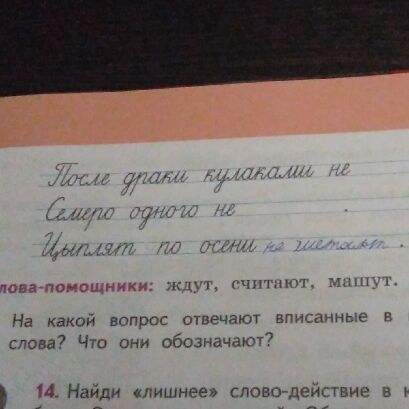 После драки кулаками не
Семеро одного не .
Цыплят по осени не считают .
лова-помощники: ждут, считают, машут.
На какой вопрос отвечают вписанные в
слова? Что они обозначают?
14. Найди «лишнее» слово-действие в